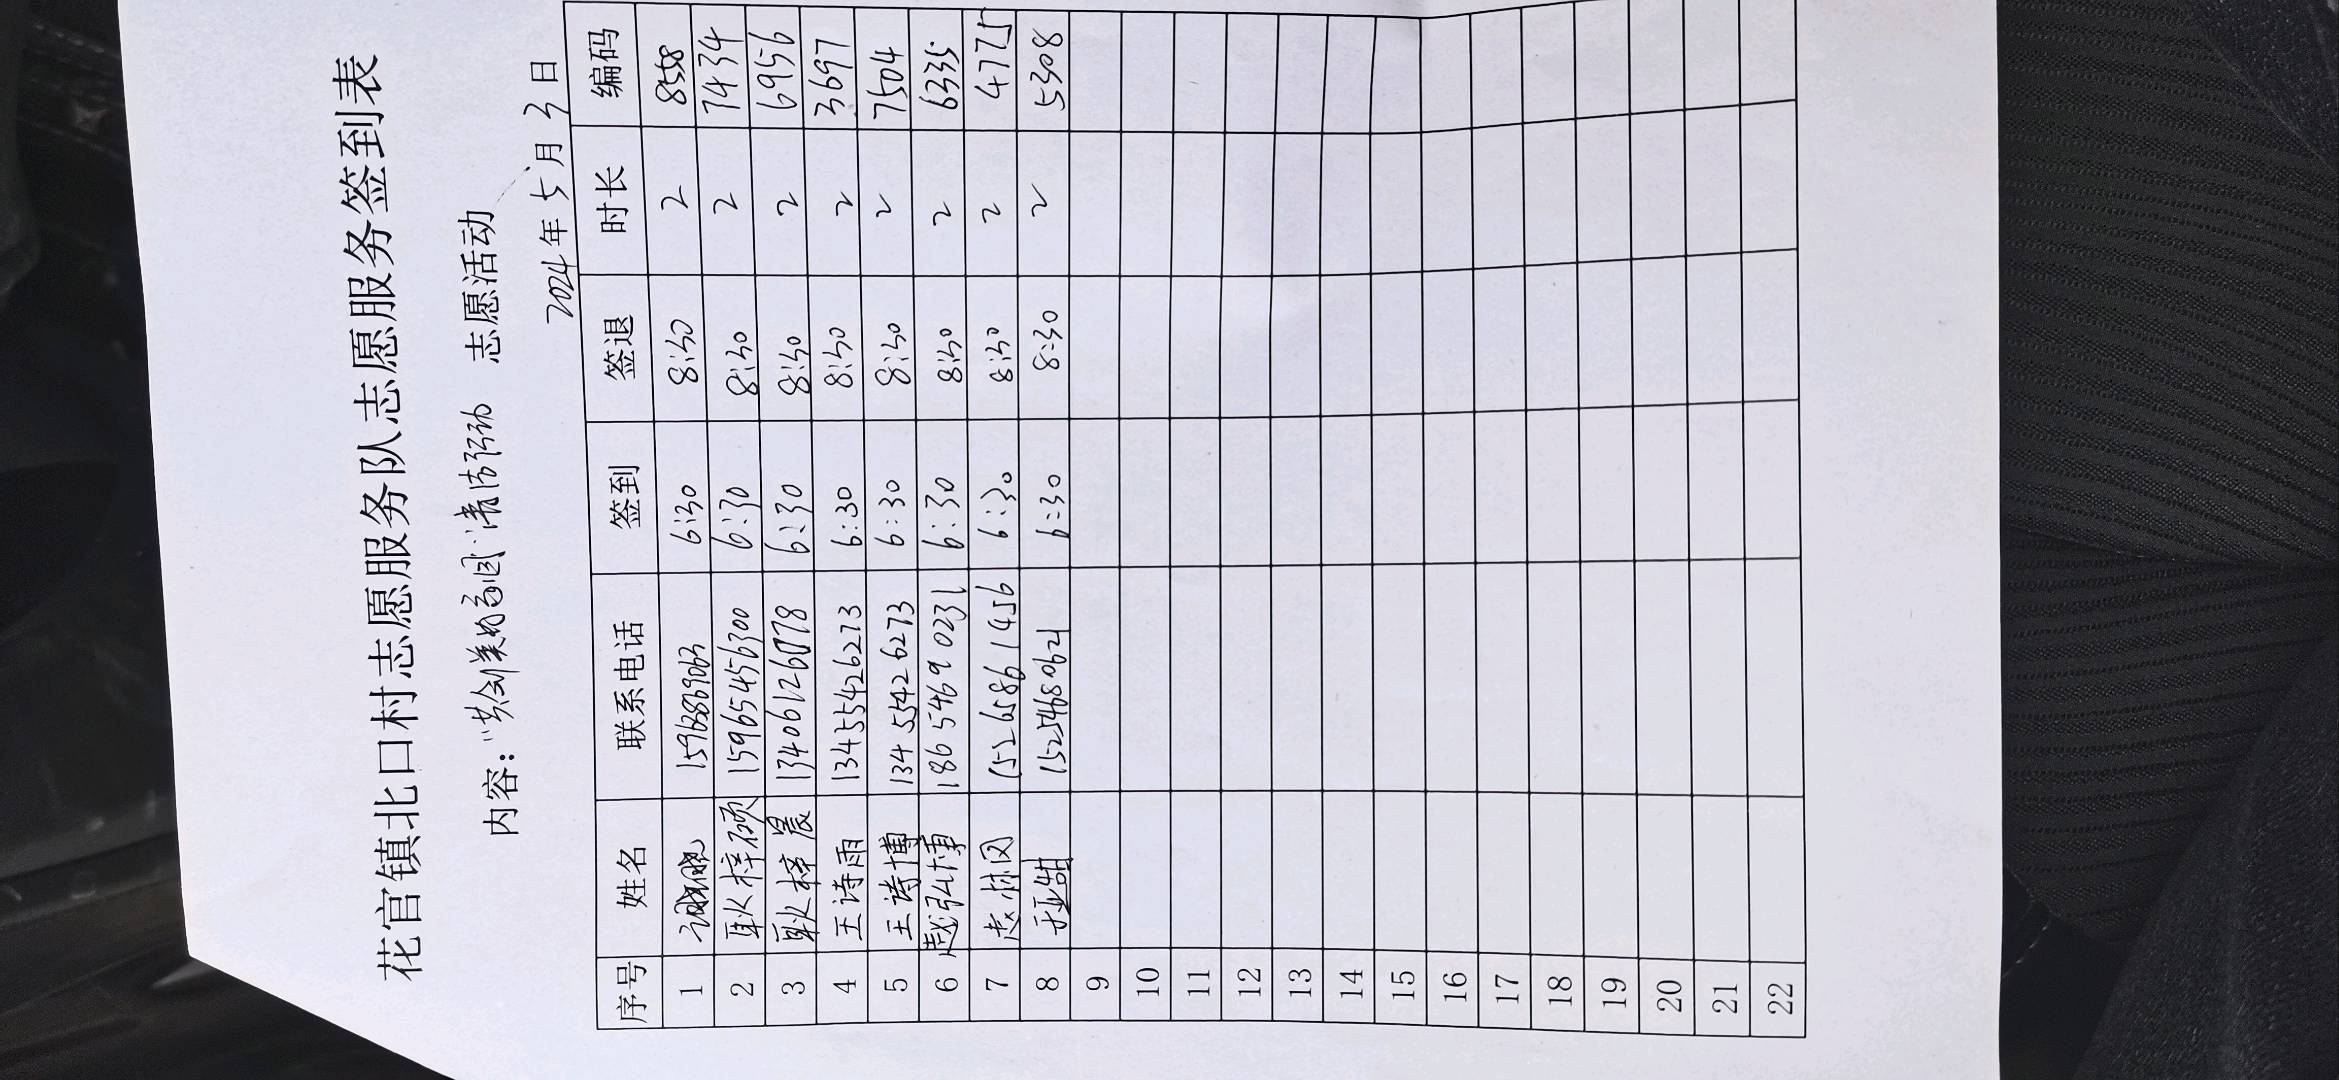 花官镇北口村志愿服务队志愿服务签到表
内容：“共创美好家园”清洁活动 志愿活动
2024年5月3日
序号 姓名 联系电话 签到 签退 时长 编码
1 6:30 8:30 2 8558
2 耿梓硕 15965456300 6:30 8:30 2 7434
3 耿梓晨 6:30 8:30 2 6956
4 王诗雨 13455426273 6:30 8:30 2 3697
5 王诗博 13455426273 6:30 8:30 2 7504
6 赵弘博 18654690231 6:30 8:30 2 6335
7 赵林凤 15265861456 6:30 8:30 2 4775
8 15254680621 6:30 8:30 2 5308
9
10
11
12
13
14
15
16
17
18
19
20
21
22